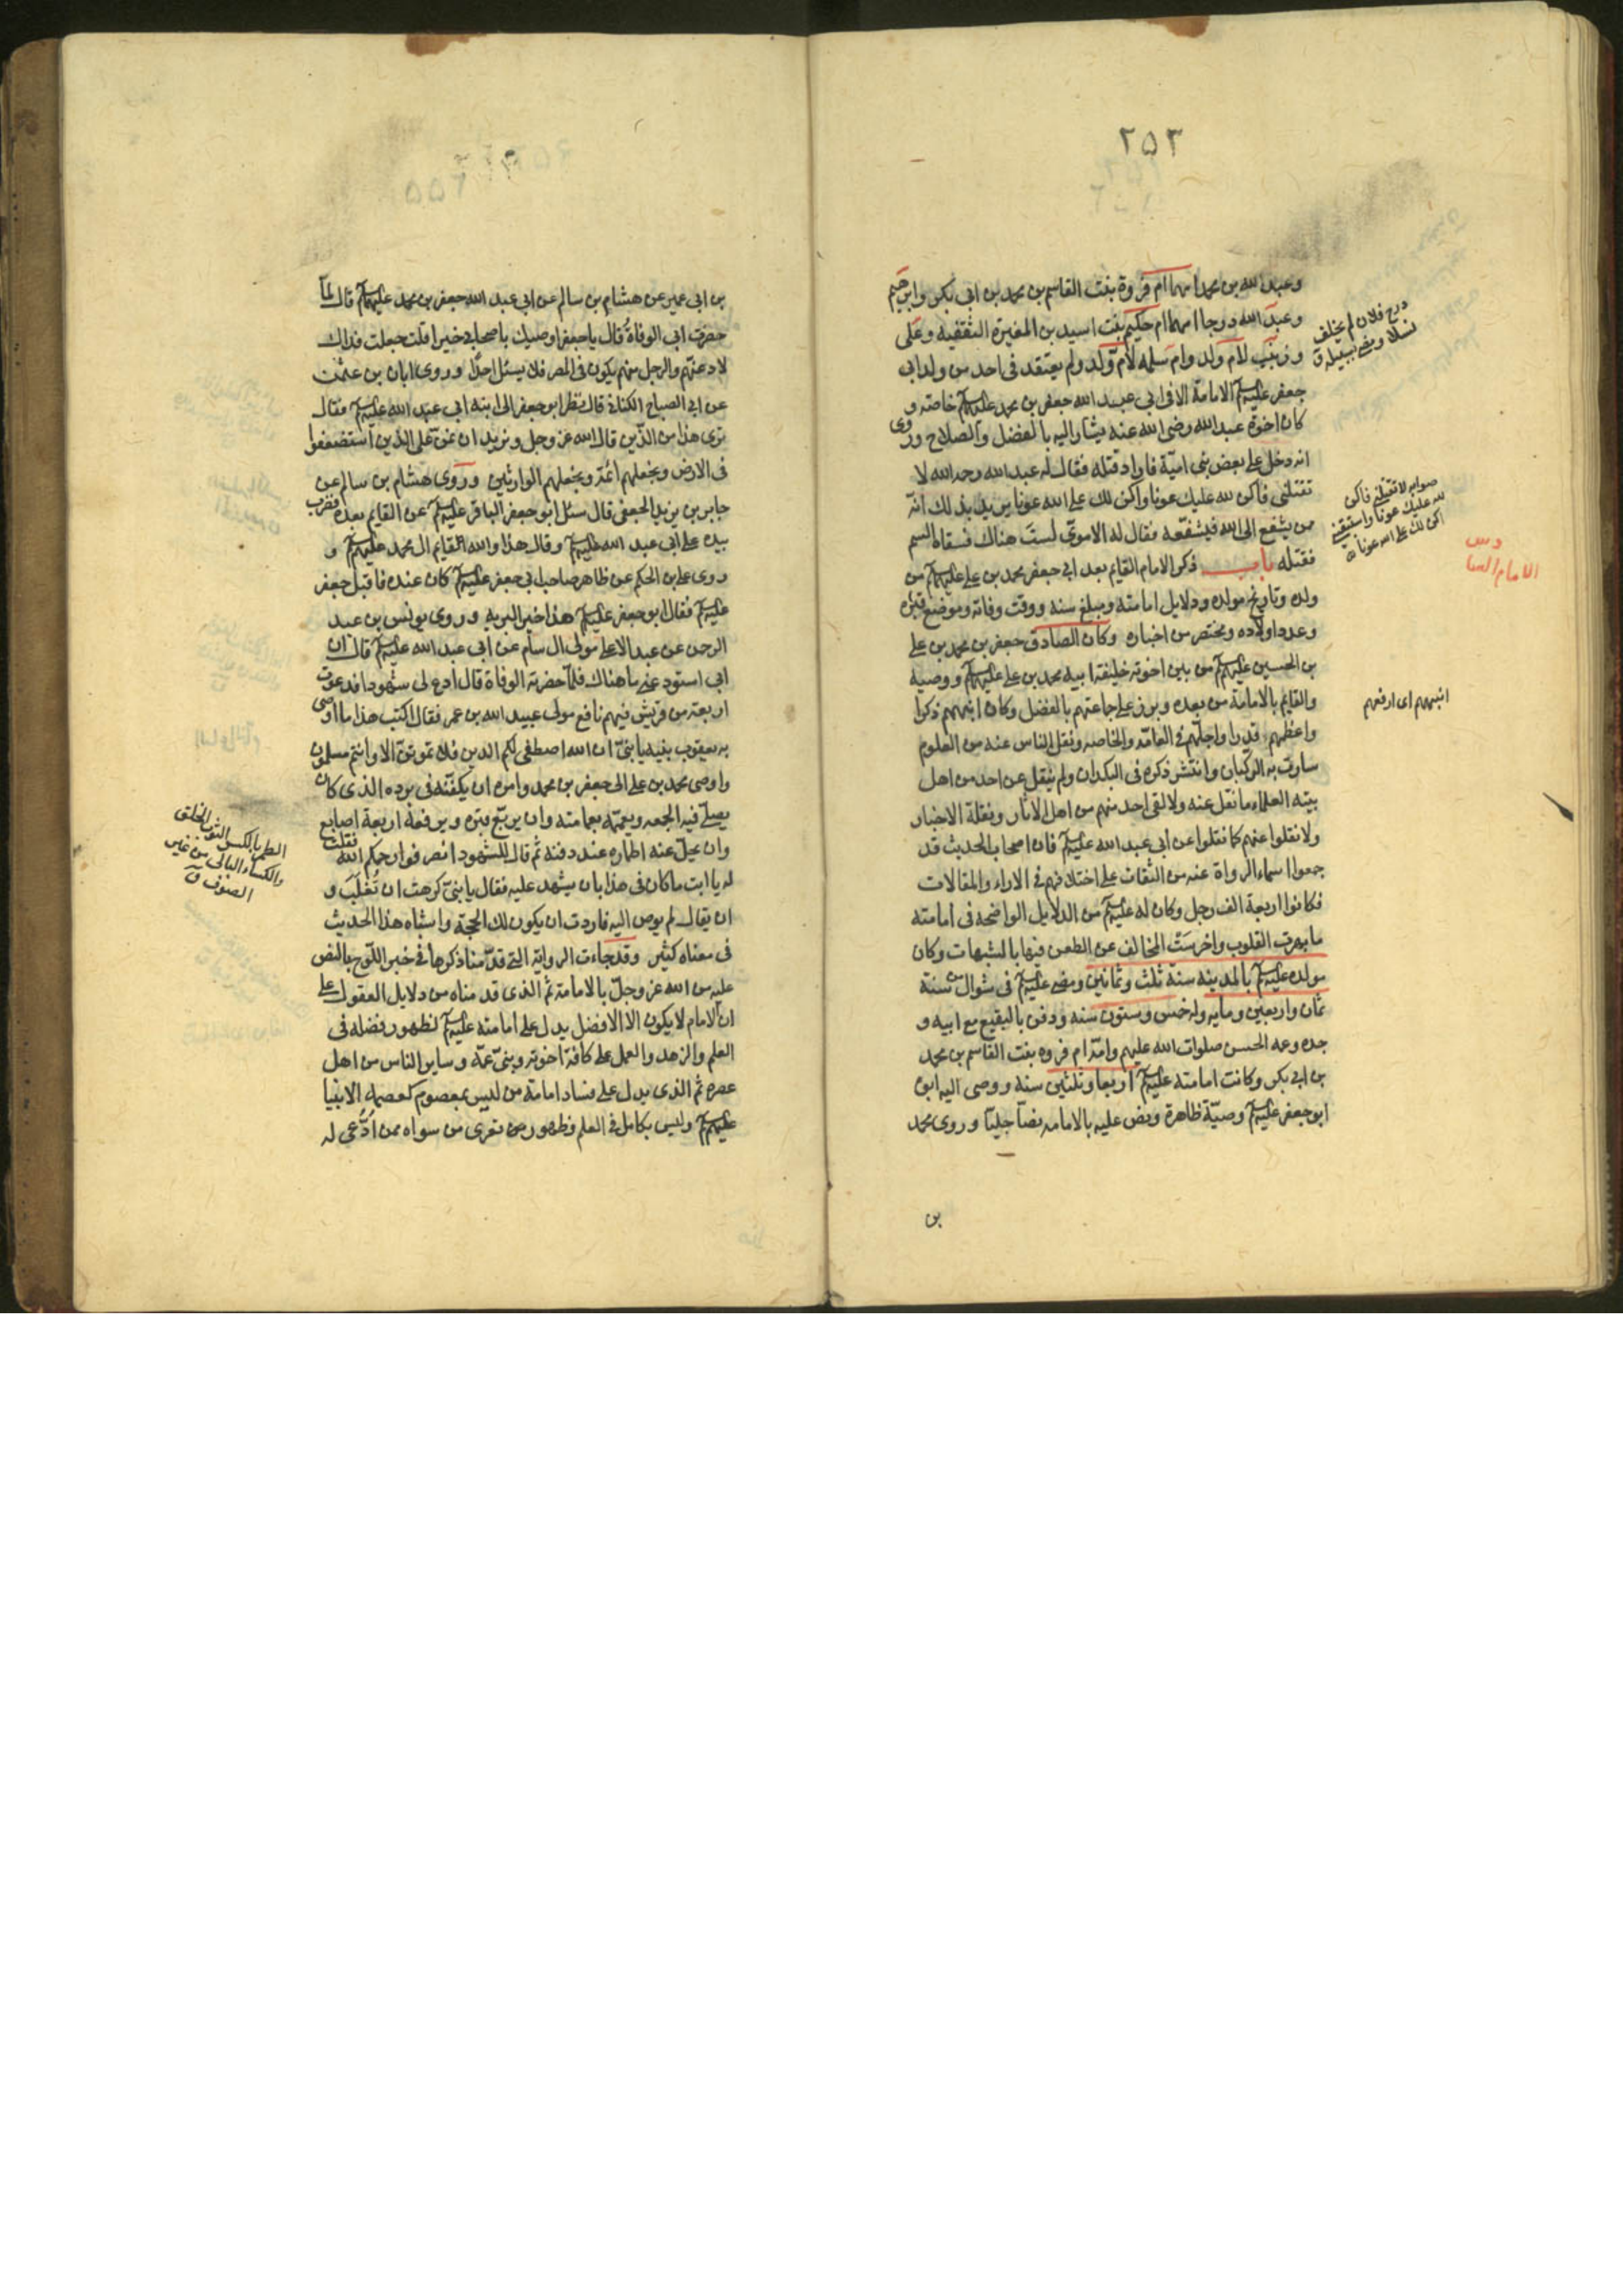 ۲۵۳
وعبد الله بن محمد امهما ام فروة بنت القاسم بن محمد بن ابي بكر وابرهيم
وعبد الله درجا امهما ام حكيم بنت اسيد بن المغيرة الثقفيه وعلى
وزينب لام ولد وام سلمه لام ولد ولم يعتقد فى احد من ولد ابى
جعفر عليهم الامامة الا فى ابى عبد الله جعفر بن محمد عليهم خاصة و
كان اخوه عبد الله رضى الله عنه يشار اليه بالفضل والصلاح وروى
انه دخل على بعض بنى امية فاراد قتله فقال له عبد الله رحمه الله لا
تقتلنى فاكن لله عليك عونا واكن لك على الله عونا يريد بذلك انه
ممن يشفع الى الله فيشفعه فقال له الاموى لست هناك فسقاه السم
فقتله باب ذكر الامام القايم بعد ابى جعفر محمد بن على عليهم من
ولده وتاريخ مولده ودلايل امامته ومبلغ سنه ووقت وفاته وموضع قبره
وعدد اولاده ومختصر من اخباره وكان الصادق جعفر بن محمد بن على
بن الحسين عليهم من بين اخوته خليفة ابيه محمد بن على عليهم ووصيه
والقايم بالامامة من بعده وبرز على جماعتهم بالفضل وكان انبههم ذكرا
واعظمهم قدرا واجلهم فى العامه والخاصه ونقل الناس عنه من العلوم
ما سارت به الركبان وانتشر ذكره فى البلدان ولم ينقل عن احد من اهل
بيته العلماء ما نقل عنه ولا لقى احد منهم من اهل الاثار ونقلة الاخبار
ولا نقلوا عنهم كما نقلوا عن ابى عبد الله عليه فان اصحاب الحديث قد
جمعوا اسماء الرواة عنه من الثقات على اختلافهم فى الاراء والمقالات
فكانوا اربعة الف رجل وكان له عليه من الدلايل الواضحه فى امامته
ما بهرت القلوب واخرست المخالف عن الطعن فيها بالشبهات وكان
مولده عليه بالمدينه سنة ثلث وثمانين ومضى عليه فى شوال من سنة
ثمان واربعين ومايه وله خمس وستون سنه ودفن بالبقيع مع ابيه و
جده وعمه الحسن صلوات الله عليهم وامه ام فروه بنت القاسم بن محمد
بن ابى بكر وكانت امامته عليه اربعا وثلثين سنه ووصى اليه ابوه
ابو جعفر عليه وصية ظاهرة ونص عليه بالامامه نصا جليا وروى محمد
بن
درج فلان لم يخلف
نسلا ومضى بسبيله ق
صوابه لا تقتلنى فاكن
لله عليك عونا واستبقنى
اكن لك على الله عونا
انبههم اى ارفعهم
بن ابى عمير عن هشام بن سالم عن ابى عبد الله جعفر بن محمد عليهما قال لما
حضرت ابى الوفاة قال يا جعفر اوصيك باصحابى خيرا قلت جعلت فداك
لادعنهم والرجل منهم يكون فى المصر فلا يسئل احدا وروى ابان بن عثمن
عن ابى الصباح الكنانى قال نظر ابو جعفر الى ابنه ابى عبد الله عليه فقال
ترى هذا من الذين قال الله عز وجل ونريد ان نمن على الذين استضعفوا
فى الارض ونجعلهم ائمة ونجعلهم الوارثين وروى هشام بن سالم عن
جابر بن يزيد الجعفى قال سئل ابو جعفر الباقر عليه عن القايم بعده فضرب
بيده على ابى عبد الله عليه وقال هذا والله القايم ال محمد عليهم و
روى على بن الحكم عن طاهر صاحب ابى جعفر عليه كان عنده فاقبل جعفر
عليه فقال ابو جعفر عليه هذا خير البريه وروى يونس بن عبد
الرحمن عن عبد الاعلى مولى ال سام عن ابى عبد الله عليه قال ان
ابى استودعنى ما هناك فلما حضرته الوفاة قال ادع لى شهودا فدعوت
اربعة من قريش فيهم نافع مولى عبيد الله بن عمر فقال اكتب هذا ما اوصى
به يعقوب بنيه يا بنى ان الله اصطفى لكم الدين فلا تموتن الا وانتم مسلمون
واوصى محمد بن على الى جعفر بن محمد وامره ان يكفنه فى برده الذى كان
يصلى فيه الجمعه ويعممه بعمامته وان يربع قبره ويرفعه اربعة اصابع
وان يحل عنه اطماره عند دفنه ثم قال للشهود انصرفوا رحمكم الله فقلت
له يا ابت ما كان فى هذا بان يشهد عليه فقال يا بنى كرهت ان تغلب و
ان يقال لم يوص اليه فاردت ان يكون لك الحجة واشباه هذا الحديث
فى معناه كثير وقد جاءت الرواية التى قدمنا ذكرها فى خبر اللوح بالنص
عليه من الله عز وجل بالامامة ثم الذى قدمناه من دلايل العقول على
ان الامام لا يكون الا الافضل يدل على امامته عليه لظهور فضله فى
العلم والزهد والعمل على كافة اخوته وبنى عمه وساير الناس من اهل
عصره ثم الذى يدل على فساد امامة من ليس بمعصوم كعصمه الانبيا
عليهم وليس بكامل فى العلم وظهور من تعرى من سواه ممن ادعى له
الطمر بالكسر الثوب الخلق
والكساء البالى من غير
الصوف ق